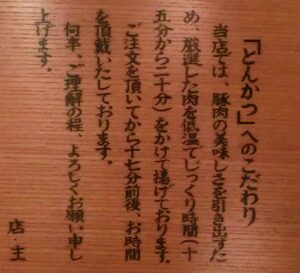 「とんかつ」へのこだわり
当店では、豚肉の美味しさを引き出すた
め、厳選した肉を低温でじっくり時間(十
五分から二十分)をかけて揚げております。
ご注文を頂いてから十七分前後、お時間
を頂戴いたしております。
何卒、ご理解の程、よろしくお願い申し
上げます。
店・主